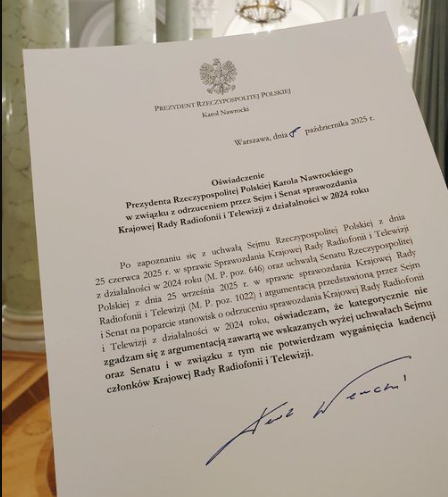 PREZYDENT RZECZYPOSPOLITEJ POLSKIEJ
Karol Nawrocki
Warszawa, dnia 8 października 2025 r.
Oświadczenie
Prezydenta Rzeczypospolitej Polskiej Karola Nawrockiego
w związku z odrzuceniem przez Sejm i Senat sprawozdania
Krajowej Rady Radiofonii i Telewizji z działalności w 2024 roku
Po zapoznaniu się z uchwałą Sejmu Rzeczypospolitej Polskiej z dnia
25 czerwca 2025 r. w sprawie Sprawozdania Krajowej Rady Radiofonii i Telewizji
z działalności w 2024 roku (M. P. poz. 646) oraz uchwałą Senatu Rzeczypospolitej
Polskiej z dnia 25 września 2025 r. w sprawie sprawozdania Krajowej Rady
Radiofonii i Telewizji (M. P. poz. 1022) i argumentacją przedstawioną przez Sejm
i Senat na poparcie stanowisk o odrzuceniu sprawozdania Krajowej Rady Radiofonii
i Telewizji z działalności w 2024 roku, oświadczam, że kategorycznie nie
zgadzam się z argumentacją zawartą we wskazanych wyżej uchwałach Sejmu
oraz Senatu i w związku z tym nie potwierdzam wygaśnięcia kadencji
członków Krajowej Rady Radiofonii i Telewizji.